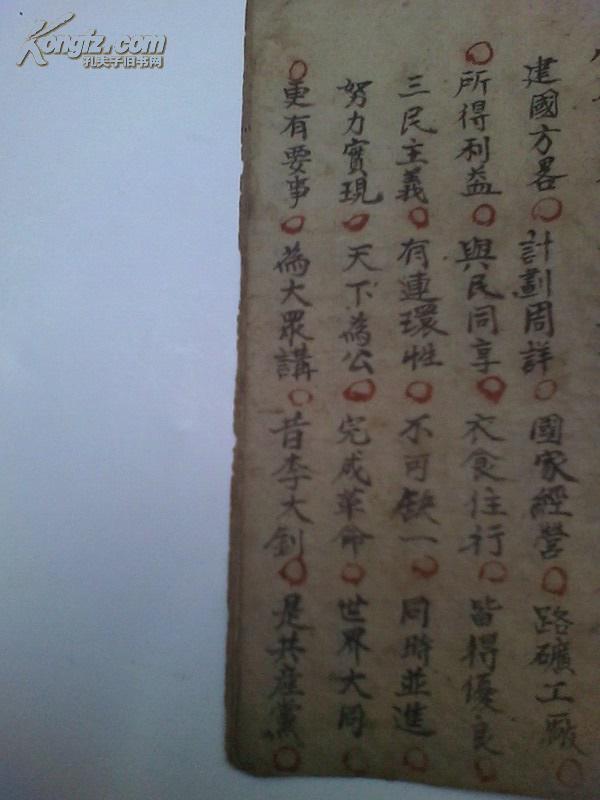 建國方畧○計劃周詳○國家經營○路礦工廠
○所得利益○與民同享○衣食住行○皆得優良○
三民主義○有連環性○不可缺一○同時並進○
努力實現○天下為公○完成革命○世界大同○
○更有要事○為大眾講○昔李大釗○是共產黨○
Kongfz.com
孔夫子旧书网